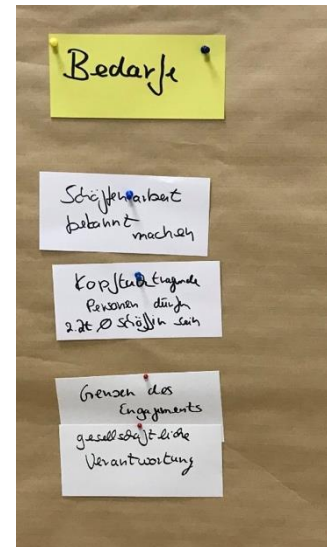 Bedarfe
Schöffenarbeit
bekannt
machen
Kopftuchtragende
Personen dürfen
z.Zt. Ø Schöff*in sein
Grenzen des
Engagements
gesellschaftliche
Verantwortung